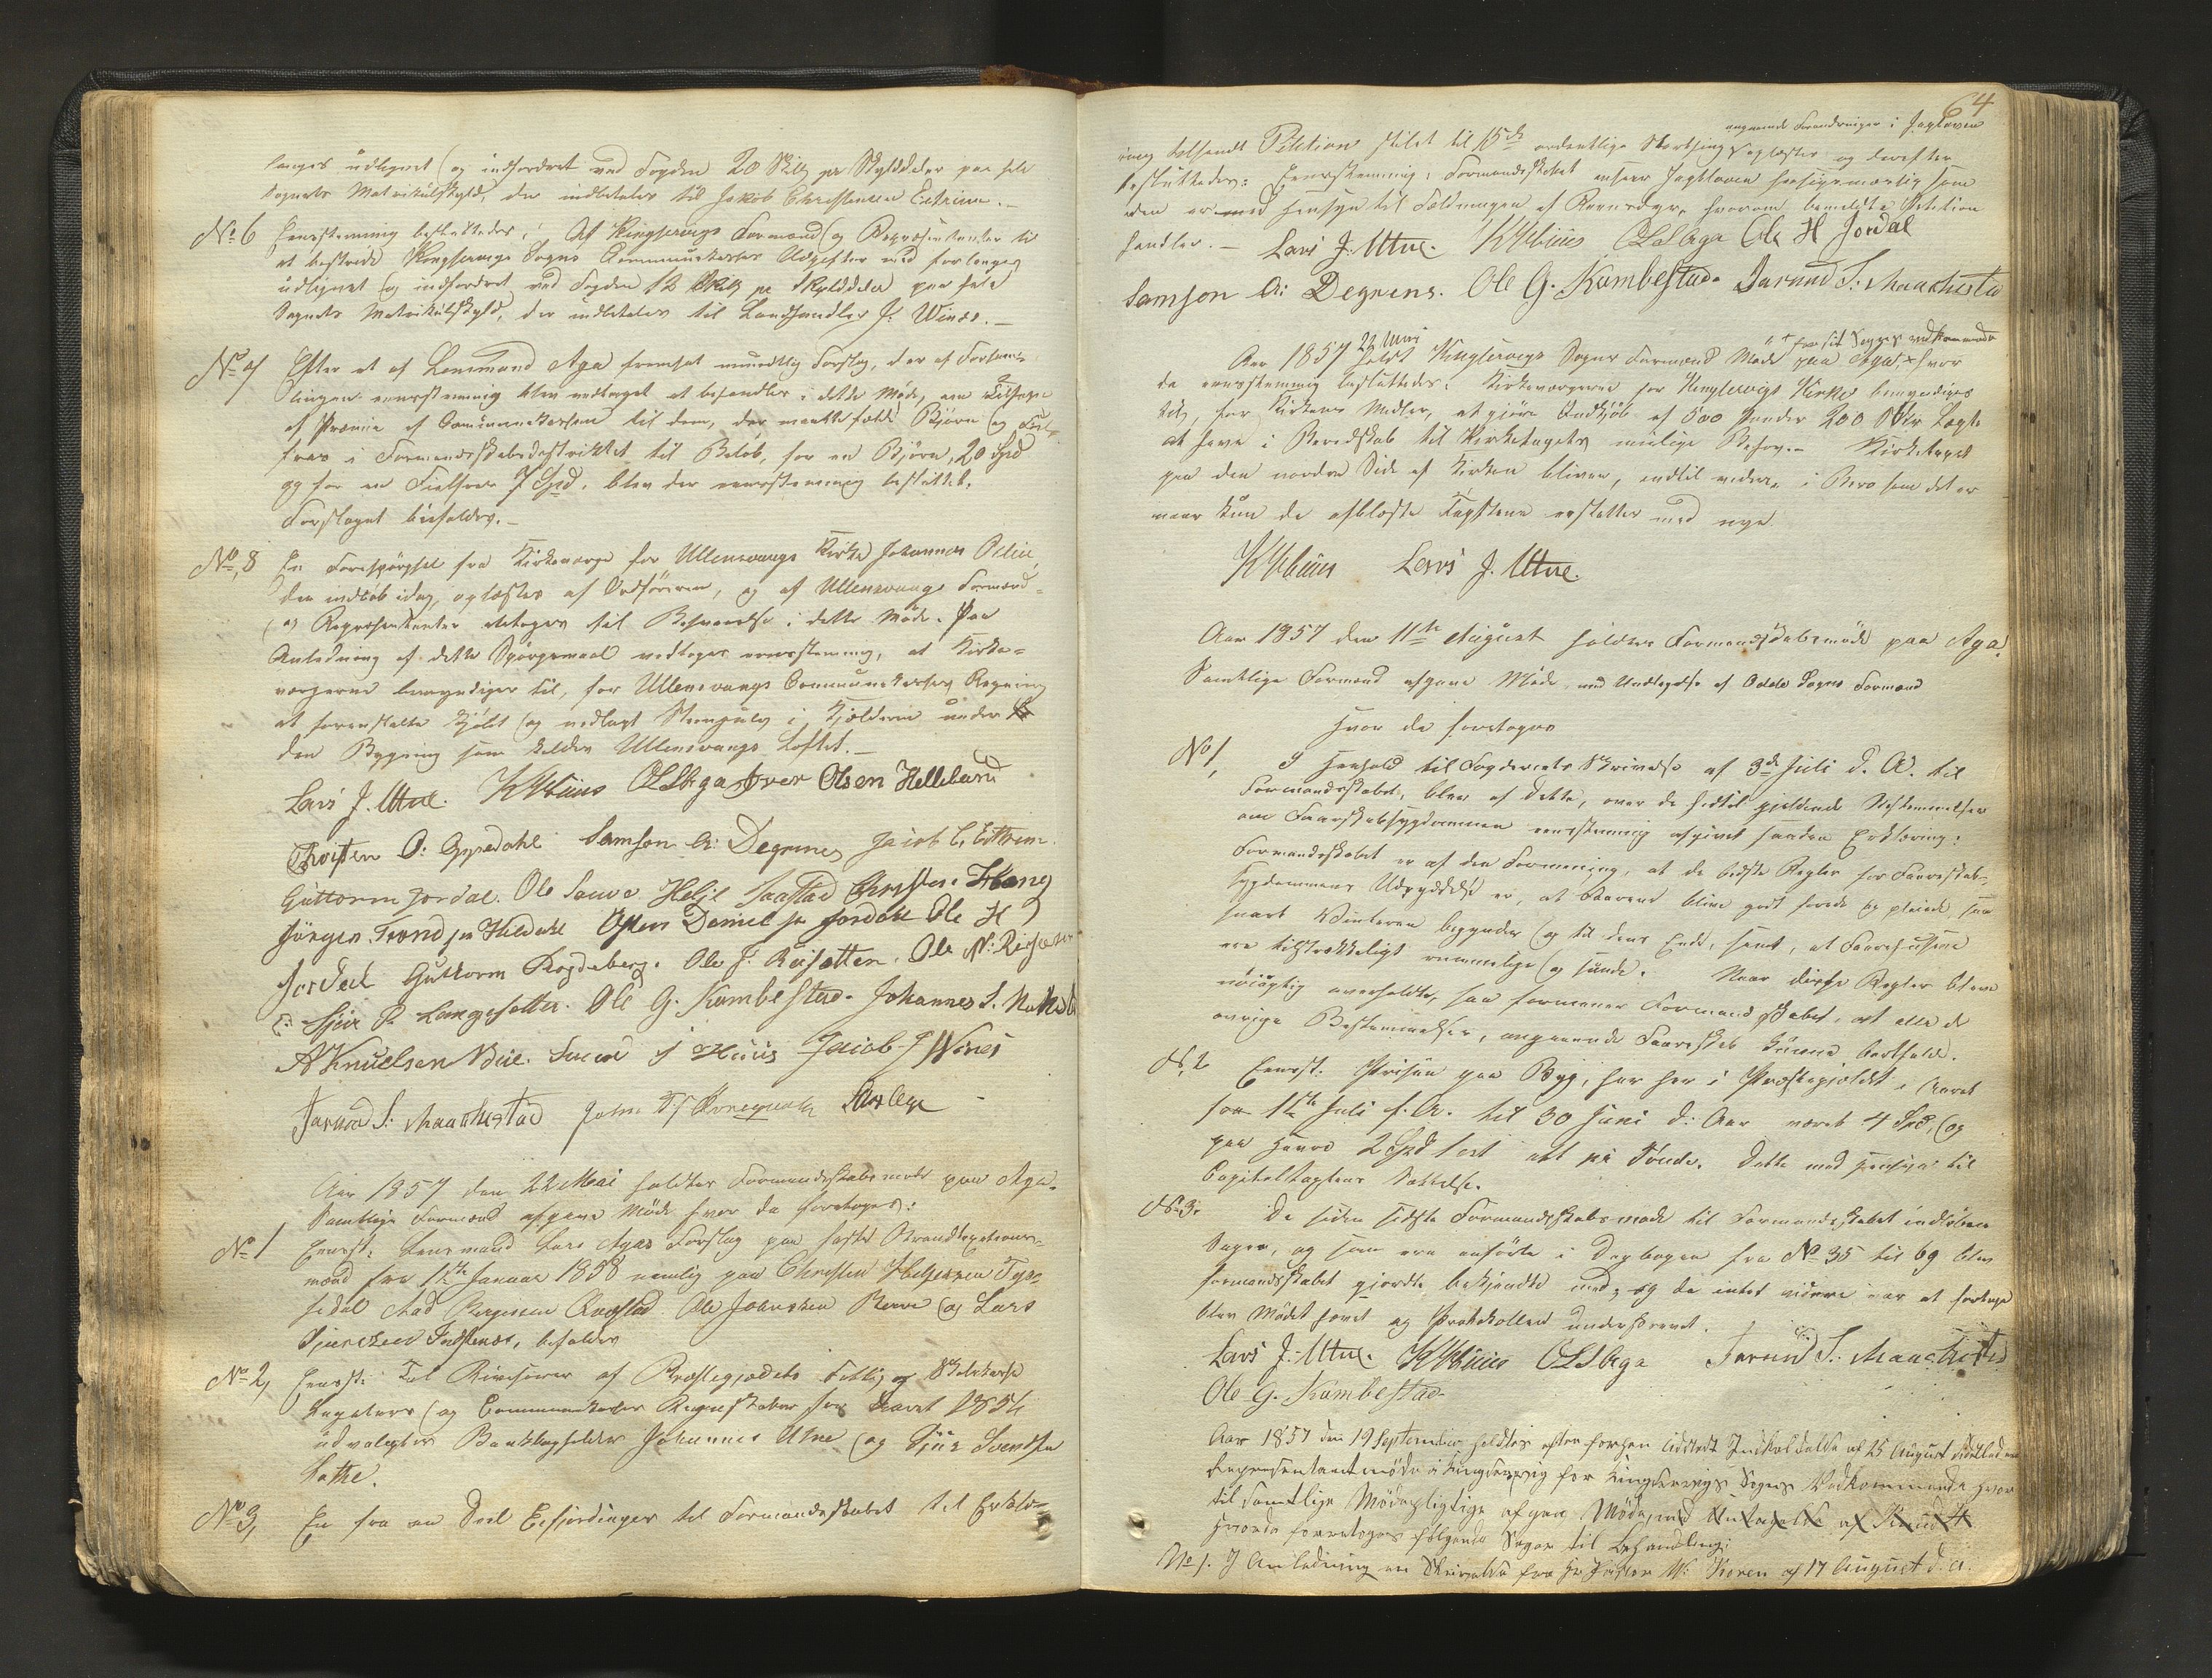 langes udlignet og indfordret ved Fogden 20 Skill pr Skylddaler paa hele
Sognets Matrikulskyld, der indbetales til Jakob Christensen Eitrim.-
No 6 Eenstemmig besluttedes: Af Kingservigs Formænd og Repræsentanter til
at bestride Kingservigs Sogns Communekasses Udgifter med forlanges
udlignet og indfordret ved Fogden 12 Skill pr Skylddaler paa hele
Sognets Matrikulskyld, der indbetales til Landhandler J. Winæs.-
No 7 Efter at af Lensmand Aga fremsat mundtlig Forslag, der af Forsam-
lingen eenstemmig blev vedtaget at behandles i dette Møde, om Tilsagn
af Præmie af Communekassen til dem, der maatte fælde Bjørn og Fiel-
fras i Formandskabsdistriktet til Beløb, for en Bjørn, 20 Spd
og for en Fielfras 7 Spd, blev der eenstemmig besluttet:
Forslaget bifaldes.-
No 8 En Forespørgsel fra Kirkeværge for Ullensvangs Kirke Johannes
der indløb idag, oplæstes af Ordføreren, og af Ullensvangs Formænd
og Repræsentanter toges til Behandling i dette Møde. Paa
Anledning af dette Spørgsmaal vedtoges eenstemmig, at Kirke-
værgerne bemyndiges til, for Ullensvangs Communekasses Regning
at foranstalte kjøbt og nedlagt Steengulv i Kjelderen under
den Bygning som kaldes Ullensvangs Loftet.-
Lars J. Utne. OLSAga Iver Olsen Helleland
Thorsten O: Samson A: Degrenes Jacob C. Eitrem.
Guttorm Jordal. Ole Helje Christen
Jørgen Trond Hildahl Daniel Jordahl Ole H
Jordal Guttorm Ole J. Ole N:
P. Langesetter. Ole G. Kambestad. Johannes S.
A Knudsen S Huus Jacob J Wines
Jarand S: Maachestad John
Aar 1857 den 22 Mai holdtes Formandskabsmøde paa Aga.
Samtlige Formænd afgave Møde hvor da foretoges:
No 1 Eenst: Lensmand Lars Agas Forslag paa faste Brandtaxations-
mænd fra 1ste Januar 1858 nemlig paa Christen Tys-
sedal Aad Aagesen Ole Johnsen og Lars
bifaldes
No 2, Eenst: Til Revisorer af Præstegjeldets Fattig og Skolekasse
Legaters og Communekasses Regnskaber for Aaret 1856
udvalgtes Johannes Utne og Sjur Svendsen
Lothe.
No 3, En fra en Deel Eifjordinger til Formandskabet til Erklæ-
64
angaaende Forandringer i Jagtloven
ring tilsendt Petition stilet til 15de ordentlige Storthing oplæstes og derefter
besluttedes: Eenstemmig: Formandskabet anseer Jagtloven hensigtsmæssig som
den er med Hensyn til Fældningen af Reensdyr, hvorom bemeldte Petition
handler.- Lars J. Utne. OLSAga Ole H Jordal
Samson A: Degrens. Ole G. Kambestad. Jarand S: Maachestad
22 Juni for sit Sogns vedkommende
Aar 1857 holdt Kingservigs Sogns Formænd Møde paa Aga, hvor
da eenstemmig besluttedes: Kirkeværgerne for Kingservigs Kirke bemyndiges
til, for Kirkens Midler, at gjøre Indkjøb af 500 Pander 200 Lægte
at have i Beredskab til Kirketagets mulige Behov.- Kirketaget
paa den nordre Side af Kirken bliver, indtil videre, i Bero som det er
naar kun de afblæste Tagstene erstattes med nye
Lars J. Utne.
Aar 1857 den 11te August holdtes Formandskabsmøde paa Aga.
Samtlige Formænd afgave Møde, med Undtagelse af Odde Sogns Formænd
hvor da foretoges
No 1, I Henhold til Fogderiets Skrivelse af 3de Juli d. A. til
Formandsskabet, blev af dette, over de hidtil gjeldende Bestemmelser
om Faareskabsygdommen eenstemmig afgivet saadan Erklæring:
Formandsskabet er af den Formening, at de bedste Regler for Faareskab-
sygdommens Udryddelse er, at Faarene blive godt forede og pleiede, saa
snart Vinteren begynder og til dens Ende, samt, at Faarehusene
ere tilstrækkeligt rummelige og sunde. Naar disse Regler bleve
nøiagtig overholdte, saa formener Formandskabet, at alle de
øvrige Bestemmelser, angaaende Faareskab kunne bortfalde.
No 2 Eenst: Prisen paa Byg, har her i Præstegjeldet i Aaret
fra 1ste Juli f. A. til 30 Juni d: Aar været 4 Spd, og
paa Havre 2 Spd 1 ort alt pr Tønde. Dette med Hensyn til
Capitelstaxtens Sættelse.
No 3. De siden sidste Formandskabsmøde til Formandskabet indløbne
Sager, og som ere anførte i Dagbogen fra No 35 til 69 blev
Formandsskabet gjordte bekjendte med; og da intet videre var at foretage
blev Mødet hævet og Protokollen underskrevet.
Lars J. Utne. OLSAga Jarand S: Maachestad
Ole G. Kambestad
Aar 1857 den 19 September holdtes efter forhen udstedt Indkaldelse af 25 August sidstleden
Repræsentantmøde i Kingservig for Kingservigs Sogns Vedkommende hvor
til samtlige Mødepligtige afgav Møde, med Undtagelse af
hvorda foretoges følgende Sager til Behandling:
No 1. I Anledning en Skrivelse fra Hr Pastor W: Koren af 17 August d. A.